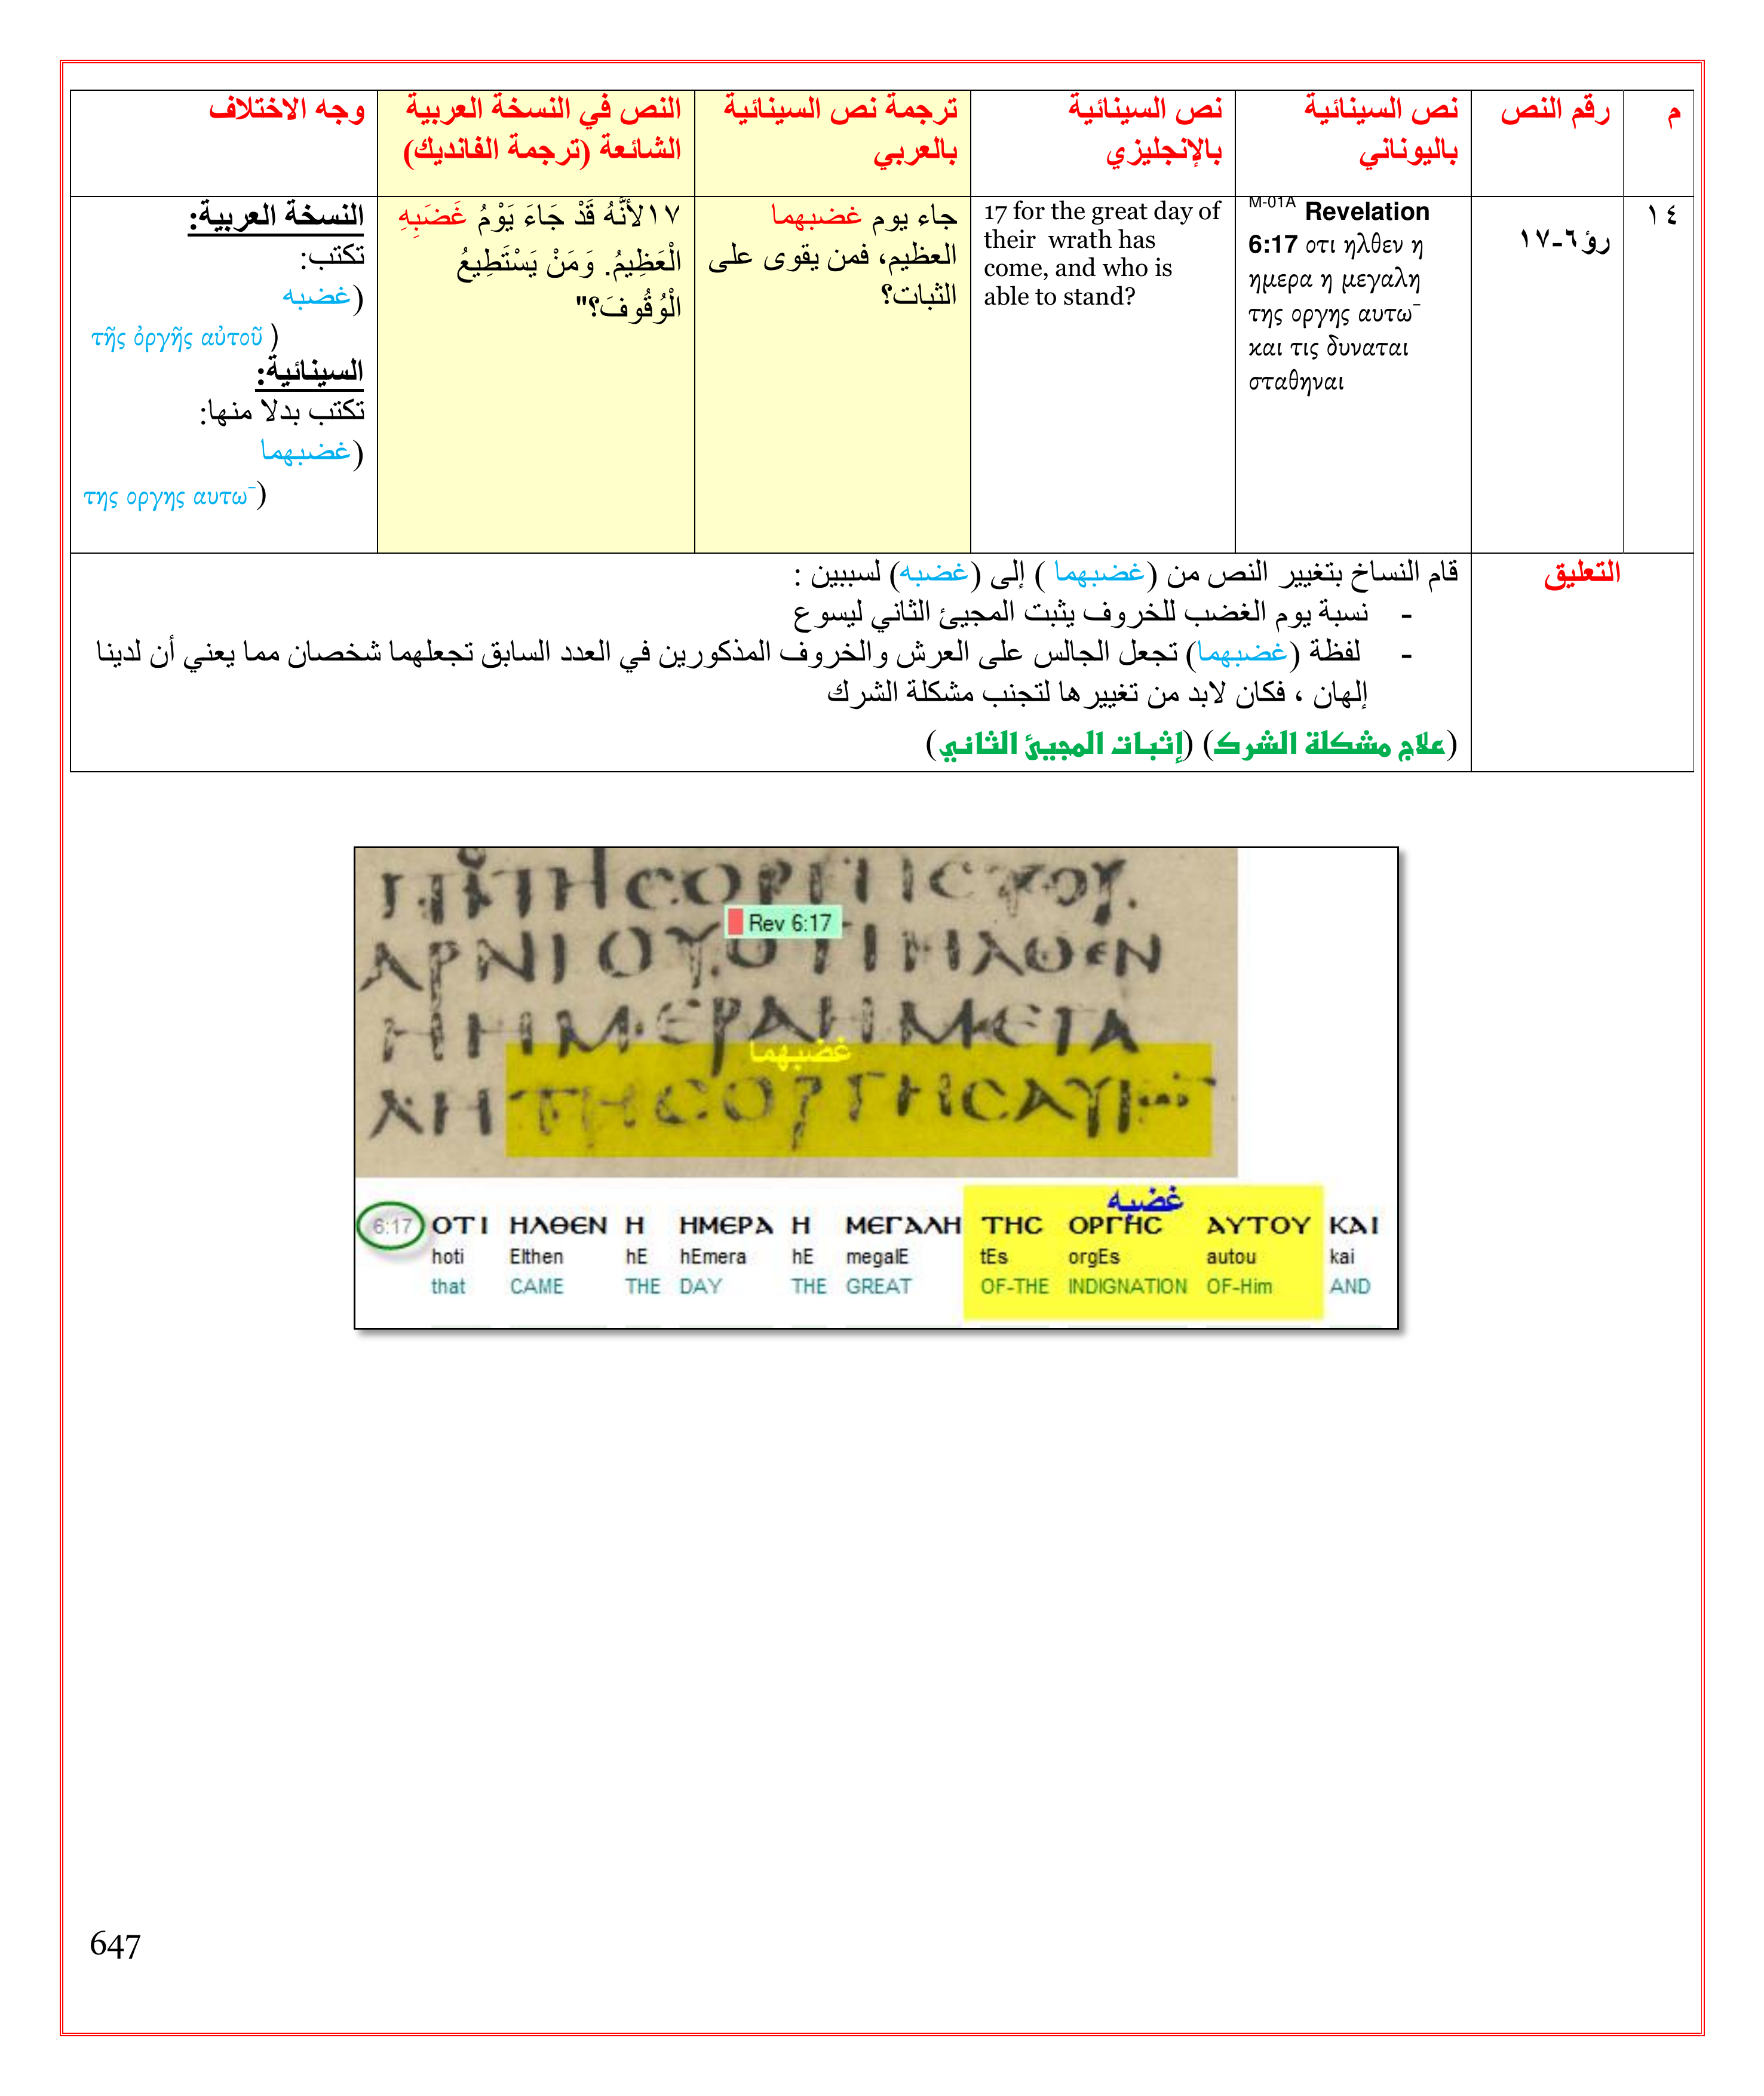 م
رقم النص
نص السينائية
باليوناني
نص السينائية
بالإنجليزي
ترجمة نص السينائية
بالعربي
النص في النسخة العربية
الشائعة (ترجمة الفانديك)
وجه الاختلاف
١٤
رؤ٦-١٧
M-01A Revelation
6:17 οτι ηλθεν η
ημερα η μεγαλη
της οργης αυτω¯
και τις δυναται
σταθηναι
17 for the great day of
their wrath has
come, and who is
able to stand?
جاء يوم غضبهما
العظيم، فمن يقوى على
الثبات؟
١٧لأَنَّهُ قَدْ جَاءَ يَوْمُ غَضَبِهِ
الْعَظِيمُ. وَمَنْ يَسْتَطِيعُ
الْوُقُوفَ؟"
النسخة العربية:
تكتب:
(غضبه
τῆς ὀργῆς αὐτοῦ )
السينائية:
تكتب بدلا منها:
(غضبهما
της οργης αυτω¯)
التعليق
قام النساخ بتغيير النص من (غضبهما ) إلى (غضبه) لسببين :
- نسبة يوم الغضب للخروف يثبت المجيئ الثاني ليسوع
- لفظة (غضبهما) تجعل الجالس على العرش والخروف المذكورين في العدد السابق تجعلهما شخصان مما يعني أن لدينا
إلهان ، فكان لابد من تغييرها لتجنب مشكلة الشرك
(علاج مشكلة الشرك) (إثبات المجيئ الثاني)
ΤΗϹΟΡΓΗϹΤΟΥ
Rev 6:17
ΑΡΝΙΟΥ.ΟΤΙΗΛΘΕΝ
ΗΗΜΕΡΑΗΜΕΓΑ
غضبهما
ΛΗΤΗϹΟΡΓΗϹΑΥΤ
غضبه
6:17 ΟΤΙ ΗΛΘΕΝ Η ΗΜΕΡΑ Η ΜΕΓΑΛΗ ΤΗϹ ΟΡΓΗϹ ΑΥΤΟΥ ΚΑΙ
hoti Elthen hE hEmera hE megalE tEs orgEs autou kai
that CAME THE DAY THE GREAT OF-THE INDIGNATION OF-Him AND
647